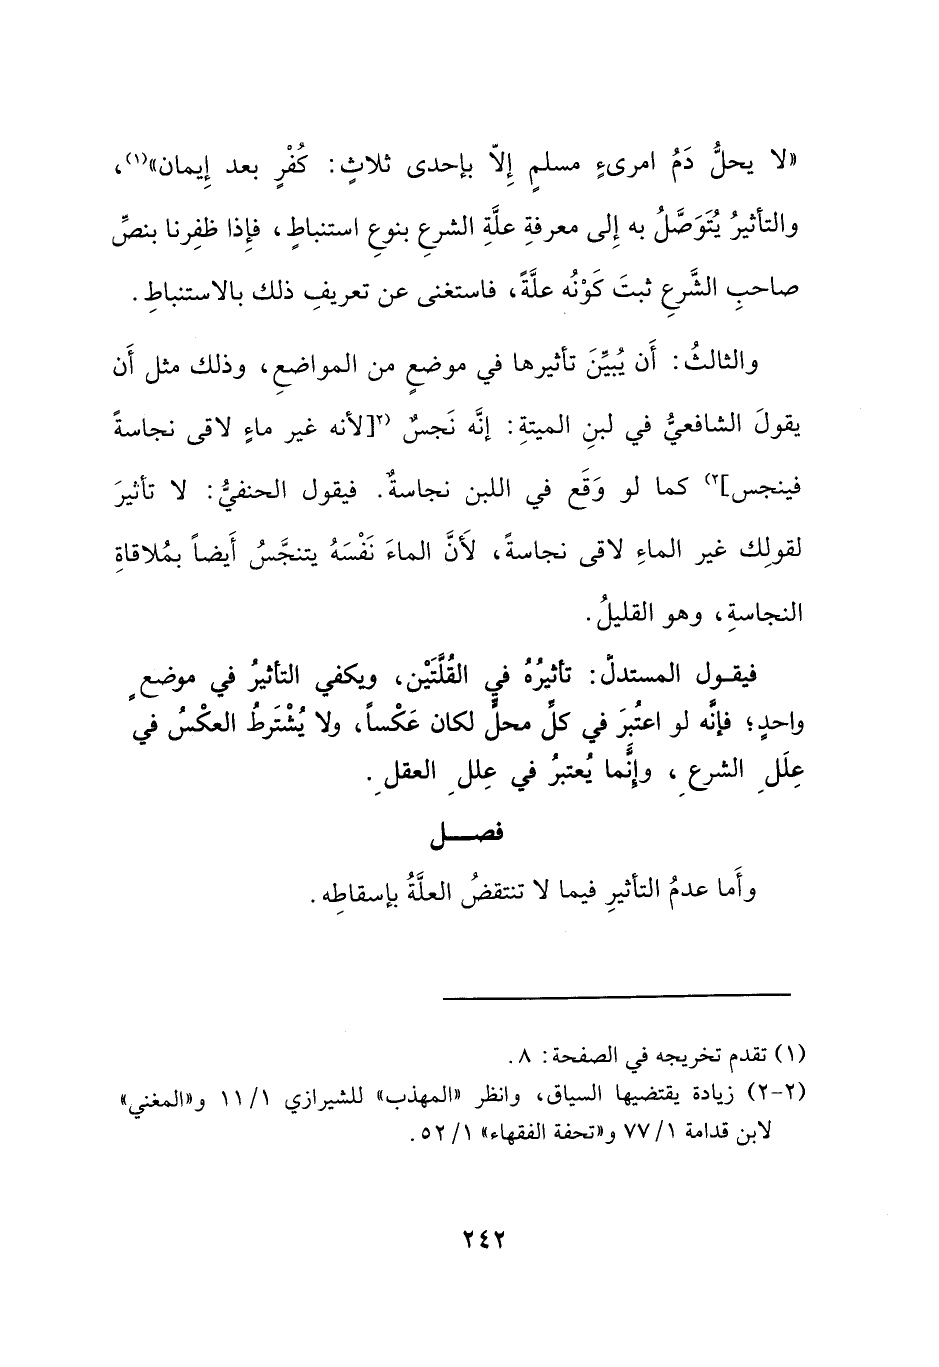 «لا يحلُّ دَمُ امرىءٍ مسلمٍ إِلاّ بإحدى ثلاثٍ: كُفْرٍ بعد إِيمان»(١)،
والتأثيرُ يُتَوَصَّلُ به إِلى معرفةِ علَّةِ الشرعِ بنوعِ استنباطٍ، فإِذا ظفِرنا بنصِّ
صاحبِ الشَّرعِ ثبتَ كَوْنُه علَّةً، فاستغنى عن تعريفِ ذلك بالاستنباطِ.
والثالثُ: أَن يُبيِّنَ تأثيرها في موضعٍ من المواضعِ، وذلك مثل أَن
يقولَ الشافعيُّ في لبنِ الميتةِ: إنَّه نَجسٌ (٢[لأنه غير ماءٍ لاقى نجاسةً
فينجس]٢) كما لو وَقَع في اللبن نجاسةٌ. فيقول الحنفيُّ: لا تأثيرَ
لقولِك غير الماءِ لاقى نجاسةً، لأَنَّ الماءَ نَفْسَهُ يتنجَّسُ أَيضاً بمُلاقاةِ
النجاسةِ، وهو القليلُ.
فيقول المستدلّ: تأثيرُهُ في القُلَّتَيْن، ويكفي التأثيرُ في موضعٍ
واحدٍ؛ فإنَّه لو اعتُبرَ في كلِّ محلٍّ لكان عَكْساً، ولا يُشْتَرطُ العكْسُ في
عِلَلِ الشرعِ، وإِنَّما يُعتبرُ في عِللِ العقلِ.
فصل
وأَما عدمُ التأثيرِ فيما لا تنتقضُ العلَّةُ بإسقاطِه.
(١) تقدم تخريجه في الصفحة: ٨.
(٢-٢) زيادة يقتضيها السياق، وانظر «المهذب» للشيرازي ١/ ١١ و«المغني»
لابن قدامة ١/ ٧٧ و«تحفة الفقهاء» ١/ ٥٢.
٢٤٢